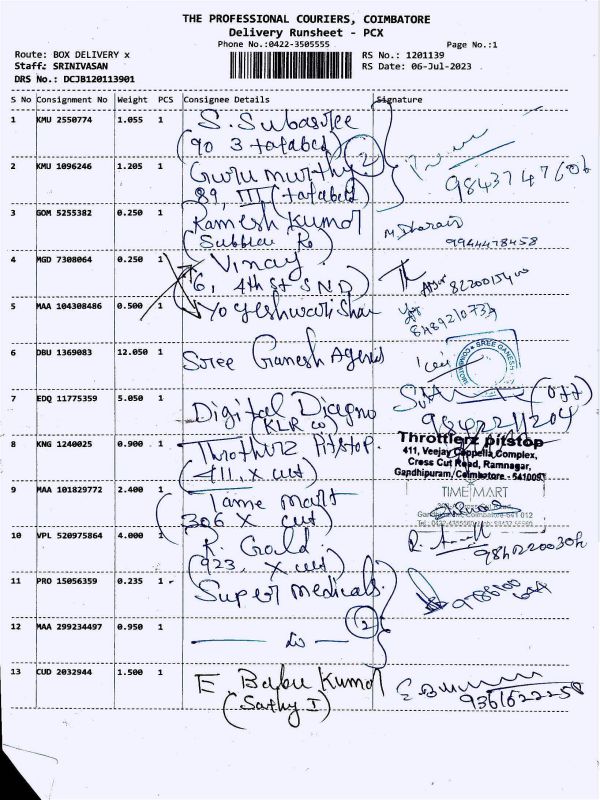 THE PROFESSIONAL COURIERS, COIMBATORE
Delivery Runsheet - PCX
Phone No.:0422-3505555 Page No.:1
Route: BOX DELIVERY x RS No.: 1201139
Staff: SRINIVASAN RS Date: 06-Jul-2023
DRS No.: DCJB120113901
S No Consignment No Weight PCS Consignee Details Signature
1 KMU 2550774 1.055 1 S. Subasree
(90 3 tatabed)
2 KMU 1096246 1.205 1 Guru murthy 2
89, III (tatabed) 9843747606
3 GOM 5255382 0.250 1 Ramesh Kumar
(Subbia Ro) 9944478458
4 MGD 7308064 0.250 1 Vinay
(6, 4th st S N D)
5 MAA 104308486 0.500 1 Yogeshwari Shar 8489210734
6 DBU 1369083 12.050 1 Sree Ganesh Agenis
SREE GANESH
7 EDQ 11775359 5.050 1 Digital Diagno
(KLR w) 9842211204
8 KNG 1240025 0.900 1 Throthurz Pitstop.
(411, X cut)
Throttlerz pitstop
411, Veejay Coppelia Complex,
Cross Cut Road, Ramnagar,
Gandhipuram, Coimbatore - 641009
9 MAA 101829772 2.400 1 Tame mart
(306 X cut)
TIME MART
10 VPL 520975864 4.000 1 R. Gold
(923, X cut)
11 PRO 15056359 0.235 1 Super medicals.
12 MAA 299234497 0.950 1 — Do — 2
13 CUD 2032944 1.500 1 E Babu Kumar
(Sathy I) 9361622258